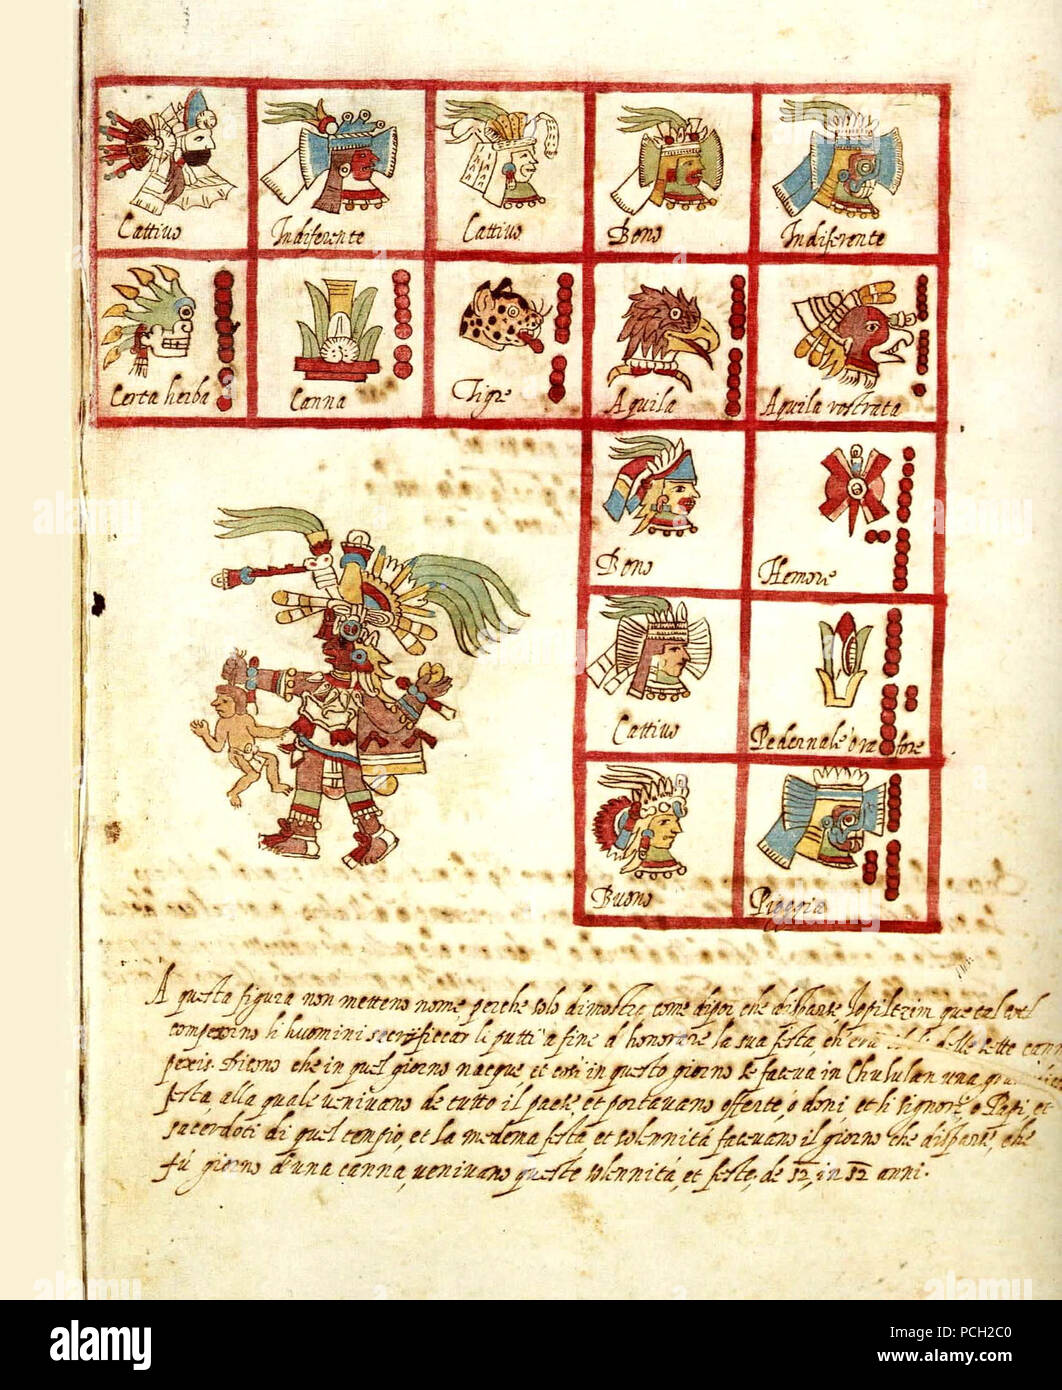 Cattivo Indiferente Cattivo Bono Indiferente
Certa herba Canna Tigre Aquila Aquila rostrata
Bono Hemore
Cattivo Pedernale o vero
Buono Pioggia
A questa figura non metteno nome perche solo dimostra come dipoi che disparse
li huomini sacrificar li putti a fine d honorare la sua festa, ch era il dì delle sette cann
Dicono che in quel giorno nacque et così in questo giorno se faceva in Chululan una
festa, alla quale venivano de tutto il paese, et portavano offerte, o doni et li signori, o Papi, et
sacerdoti di quel tempio, et la medema festa et solennità facevano il giorno che disparse, che
fù giorno d'una canna, venivano queste solennità, et feste, de 52, in 52 anni.
alamy
Image ID: PCH2C0
www.alamy.com